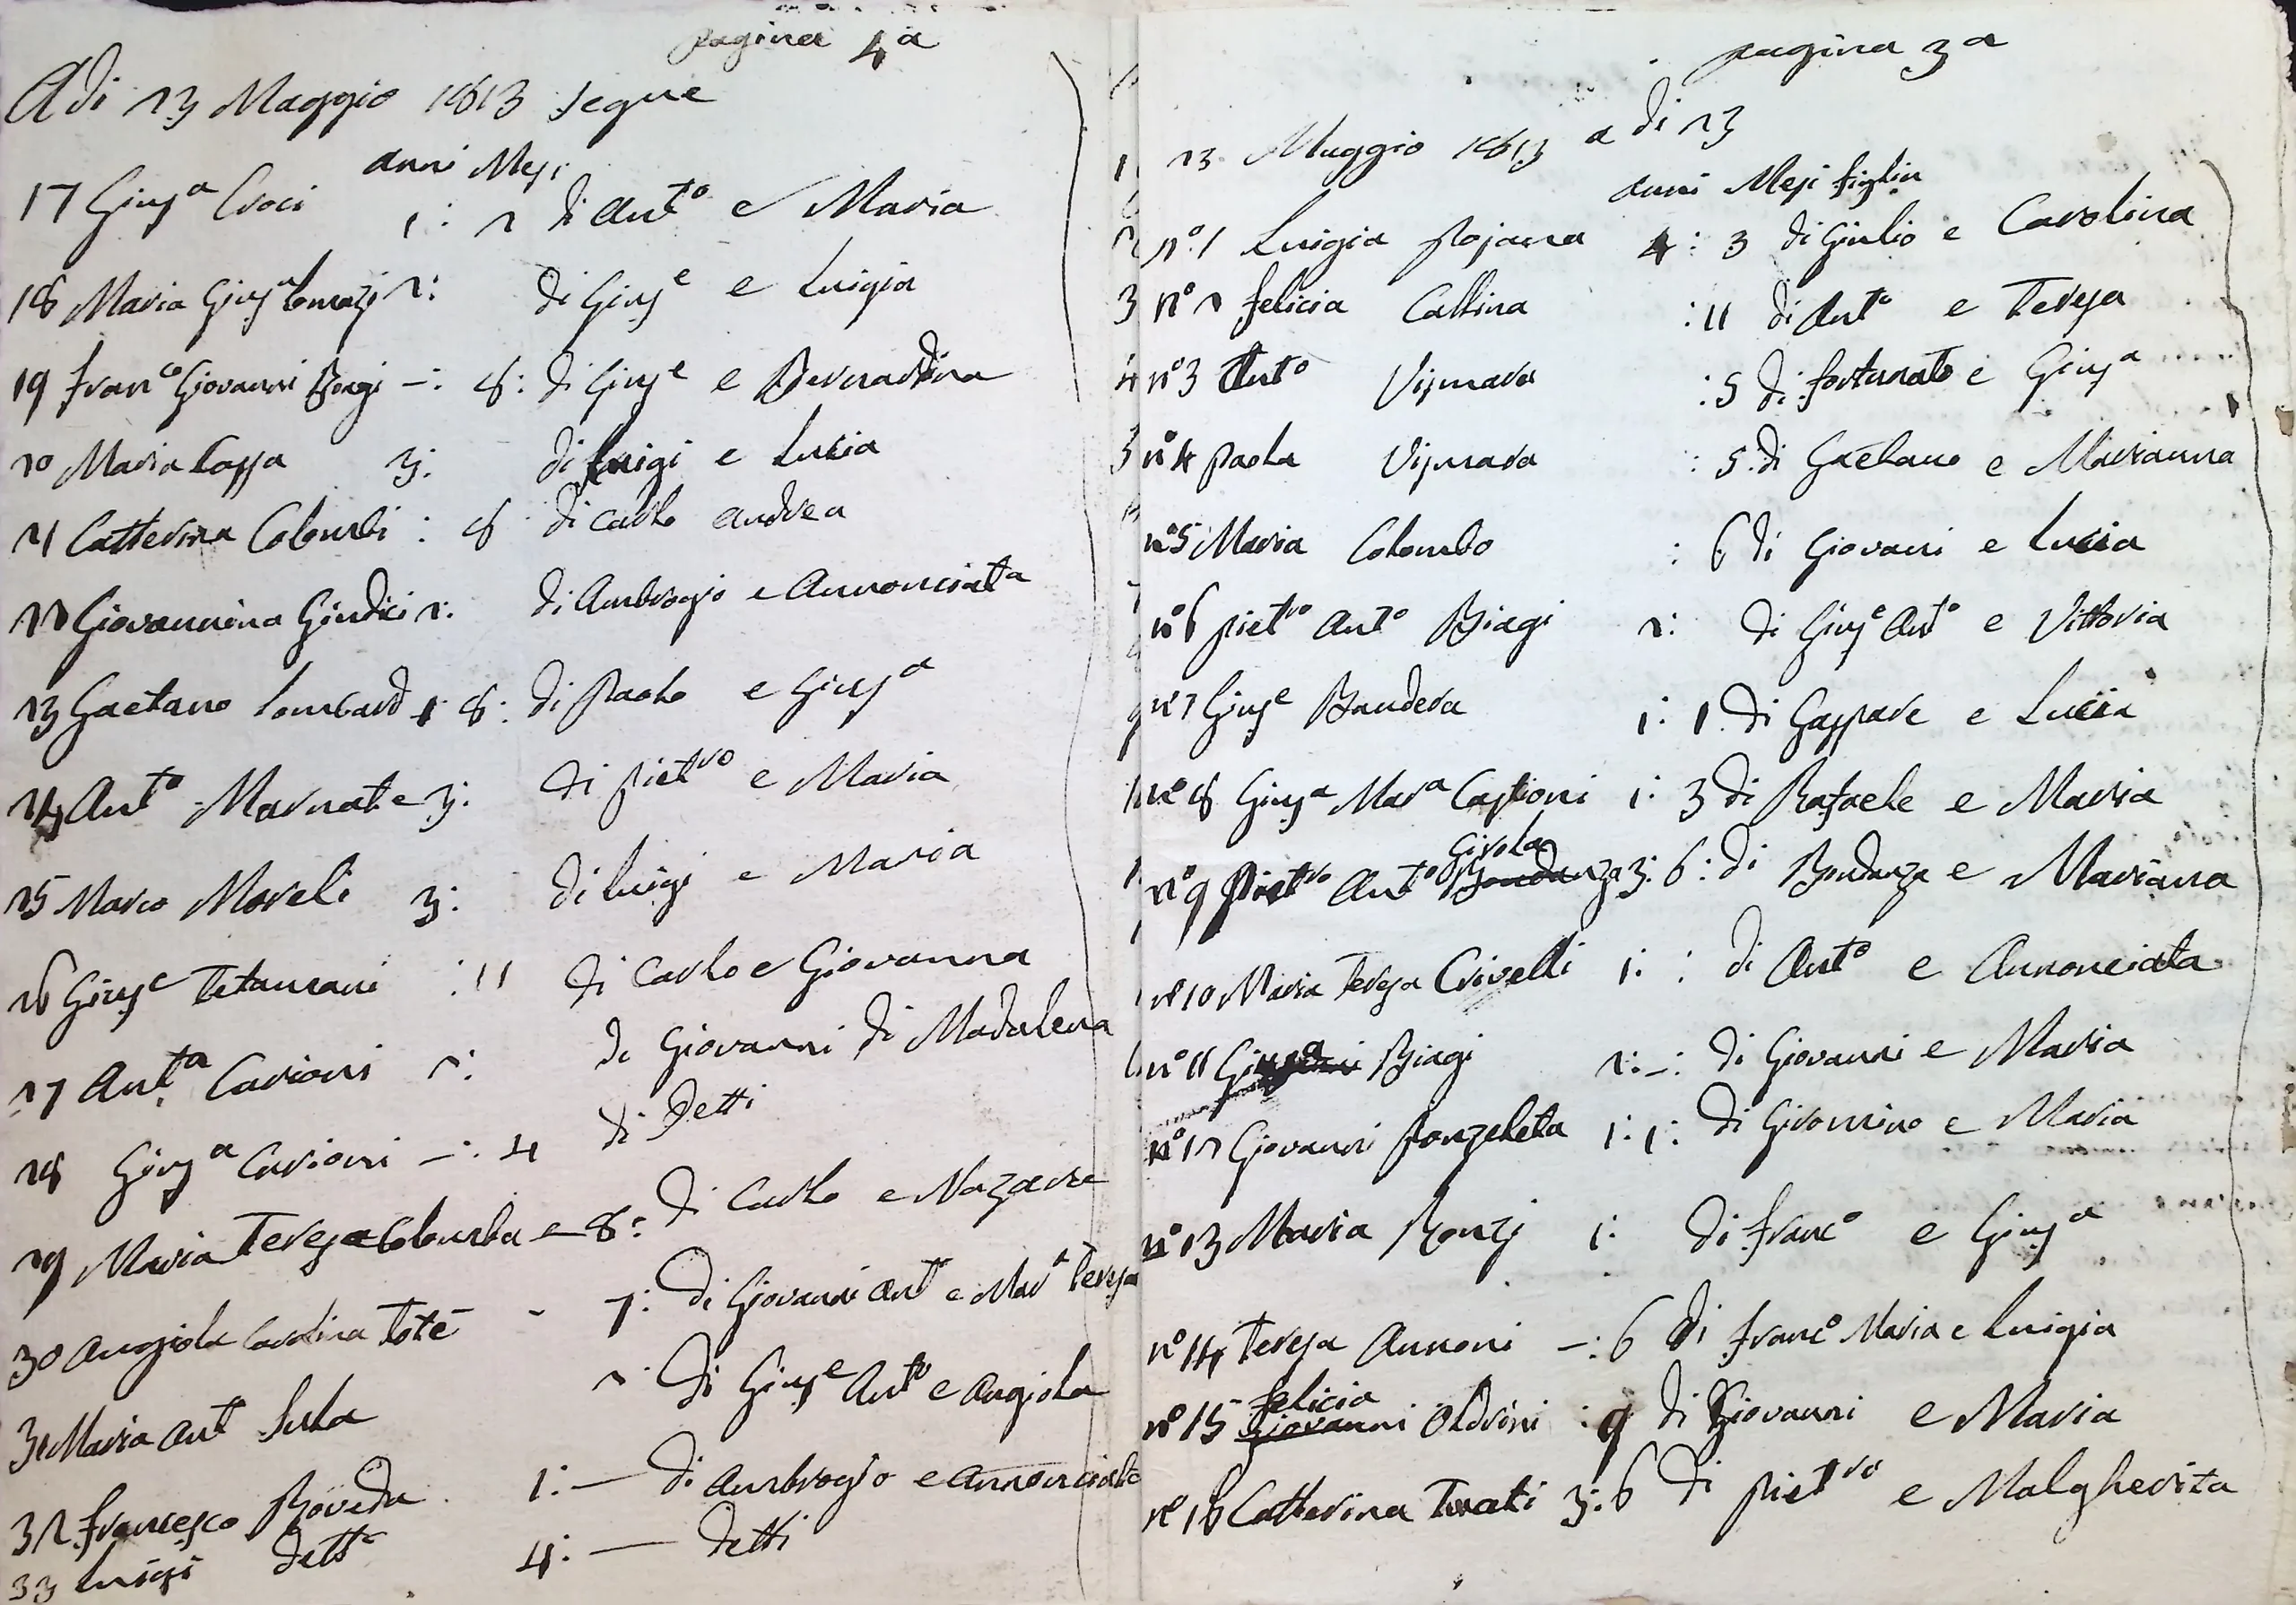 pagina 4a
Adi 23 Maggio 1813 segue
anni Mesi
17 Giusa Croci 1: 2 di Anto e Maria
18 Maria Giusa 2: di Giuse e Luigia
19 Franco Giovanni Biagi –: 8: di Giuse e Bernardina
20 Maria Cassa 3: di Luigi e Lucia
21 Catterina Colombi : 8 di Carlo Andrea
22 Giovannina Giudici 2: di Ambrogio e Annonciata
23 Gaetano Lombard 1: 8: di Paolo e Giusa
24 Anto Marnate 3: di Pietro e Maria
25 Marco Moreli 3: di Luigi e Maria
26 Giuse Tetamani : 11 di Carlo e Giovanna
27 Anta Carioni 2: di Giovanni di Madalena
28 Giusa Carioni –: 4 di Detti
29 Maria Teresa Colomba – 8: di Carlo e Nazare
30 Angiola Carolina Totè - 7: di Giovanni Ant e Mara Teresa
31 Maria Ant Sula 2 di Giuse Anto e Angiola
32 Francesco Roveda 1: — di Ambrogio e Annonciata
33 Luigi dett 4: — detti
pagina 3a
23 Maggio 1813 a di 23
anni Mesi figlia
no 1 Luigia Pojana 4: 3 di Giulio e Carolina
no 2 Felicia Cattina : 11 di Anto e Teresa
no 3 Anto Vismara : 5 di Fortunato e Giusa
no 4 Paola Vismara : 5 di Gaetano e Marianna
no 5 Maria Colombo : 6 di Giovani e Lucia
no 6 Pietro Anto Biagi 2: di Giuse Anto e Vittoria
no 7 Giuse Bandera 1: 1 di Gaspare e Lucia
no 8 Giusa Mara Castioni 1: 3 di Rafaele e Maria
Girola
no 9 Pietro Anto Bondanza 3: 6: di Bondanza e Mariana
no 10 Maria Teresa Crivelli 1: : di Anto e Annonciata
no 11 Biagi 2: –: di Giovanni e Maria
no 12 Giovanni Ponzeleta 1: 1: di Giromino e Maria
no 13 Maria Ronzj 1: di Franco e Giusa
no 14 Teresa Annoni –: 6 di Franco Maria e Luigia
Felicia
no 15 Giovanni Oldrini : 9 di Giovanni e Maria
no 16 Catterina Turati 3: 6 di Pietro e Malgherita